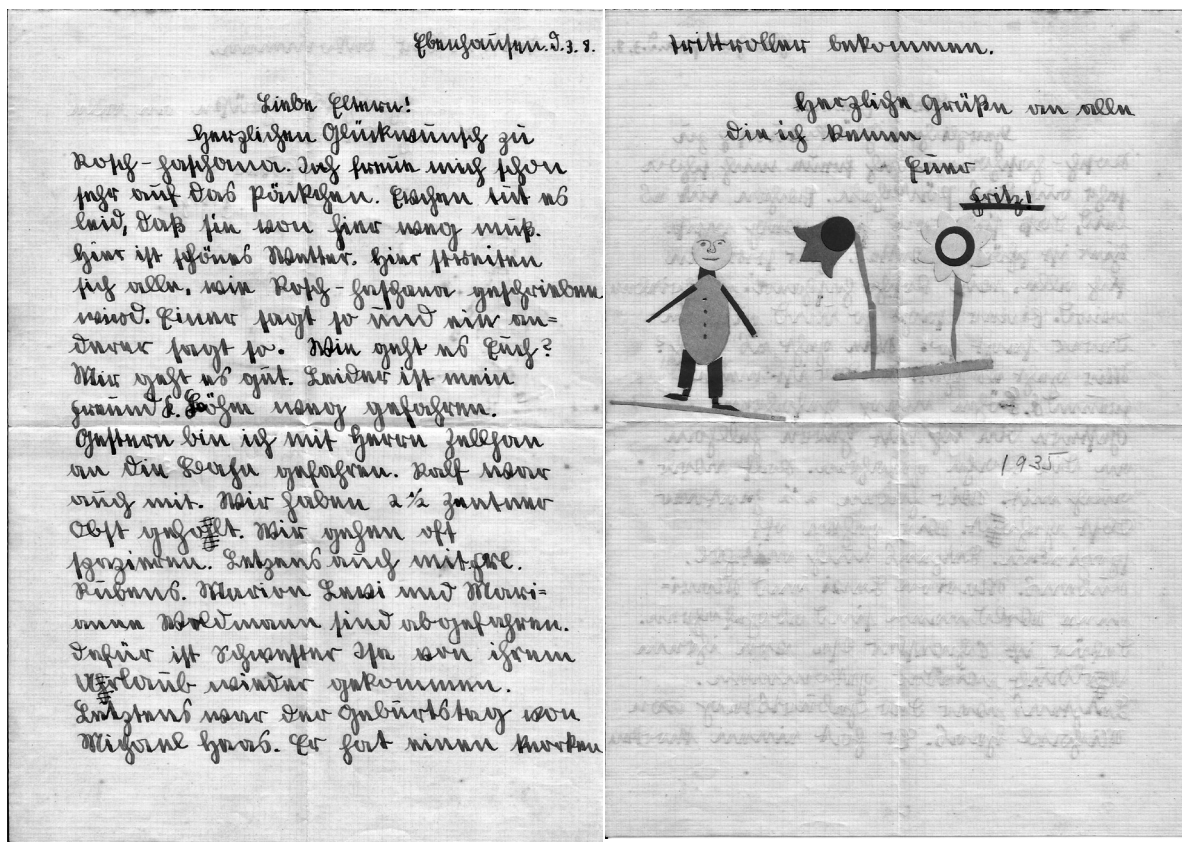 Ebenhausen.d.3.8.
Liebe Eltern!
Herzlichen Glückwunsch zu
Rosch-haschana. Ich freue mich schon
sehr auf das Päckchen. Evchen tut es
leid, daß sie von hier weg muß.
Hier ist schönes Wetter. Hier streiten
sich alle, wie Rosch-haschana geschrieben
wird. Einer sagt so und ein an=
derer sagt so. Wie geht es Euch?
Mir geht es gut. Leider ist mein
Freund weg gefahren.
Gestern bin ich mit Herrn Zellhan
an die Bahn gefahren. Ralf war
auch mit. Wir haben 2½ Zentner
Obst geholt. Wir gehen oft
spazieren. Letzens auch mit Frl.
Rubens. Marion Levi und Mari=
anne Woldmann sind abgefahren.
Dafür ist Schwester Ise von ihrem
Urlaub wieder gekommen.
Letztens war der Geburtstag von
Michael Haas. Er hat einen
trittroller bekommen.
Herzliche Grüße an alle
die ich kenne
Euer
Fritz!
1935